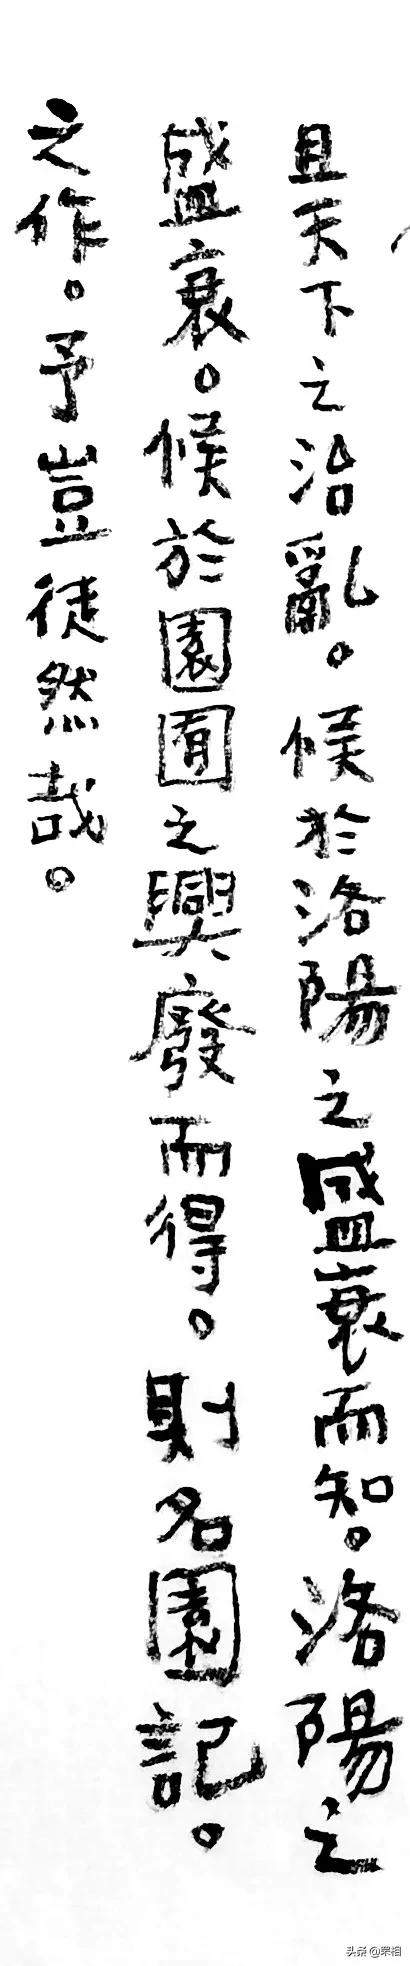 且天下之治亂。候於洛陽之盛衰而知。洛陽之
盛衰。候於園囿之興廢而得。則名園記。
之作。予豈徒然哉。
头条 @罘相